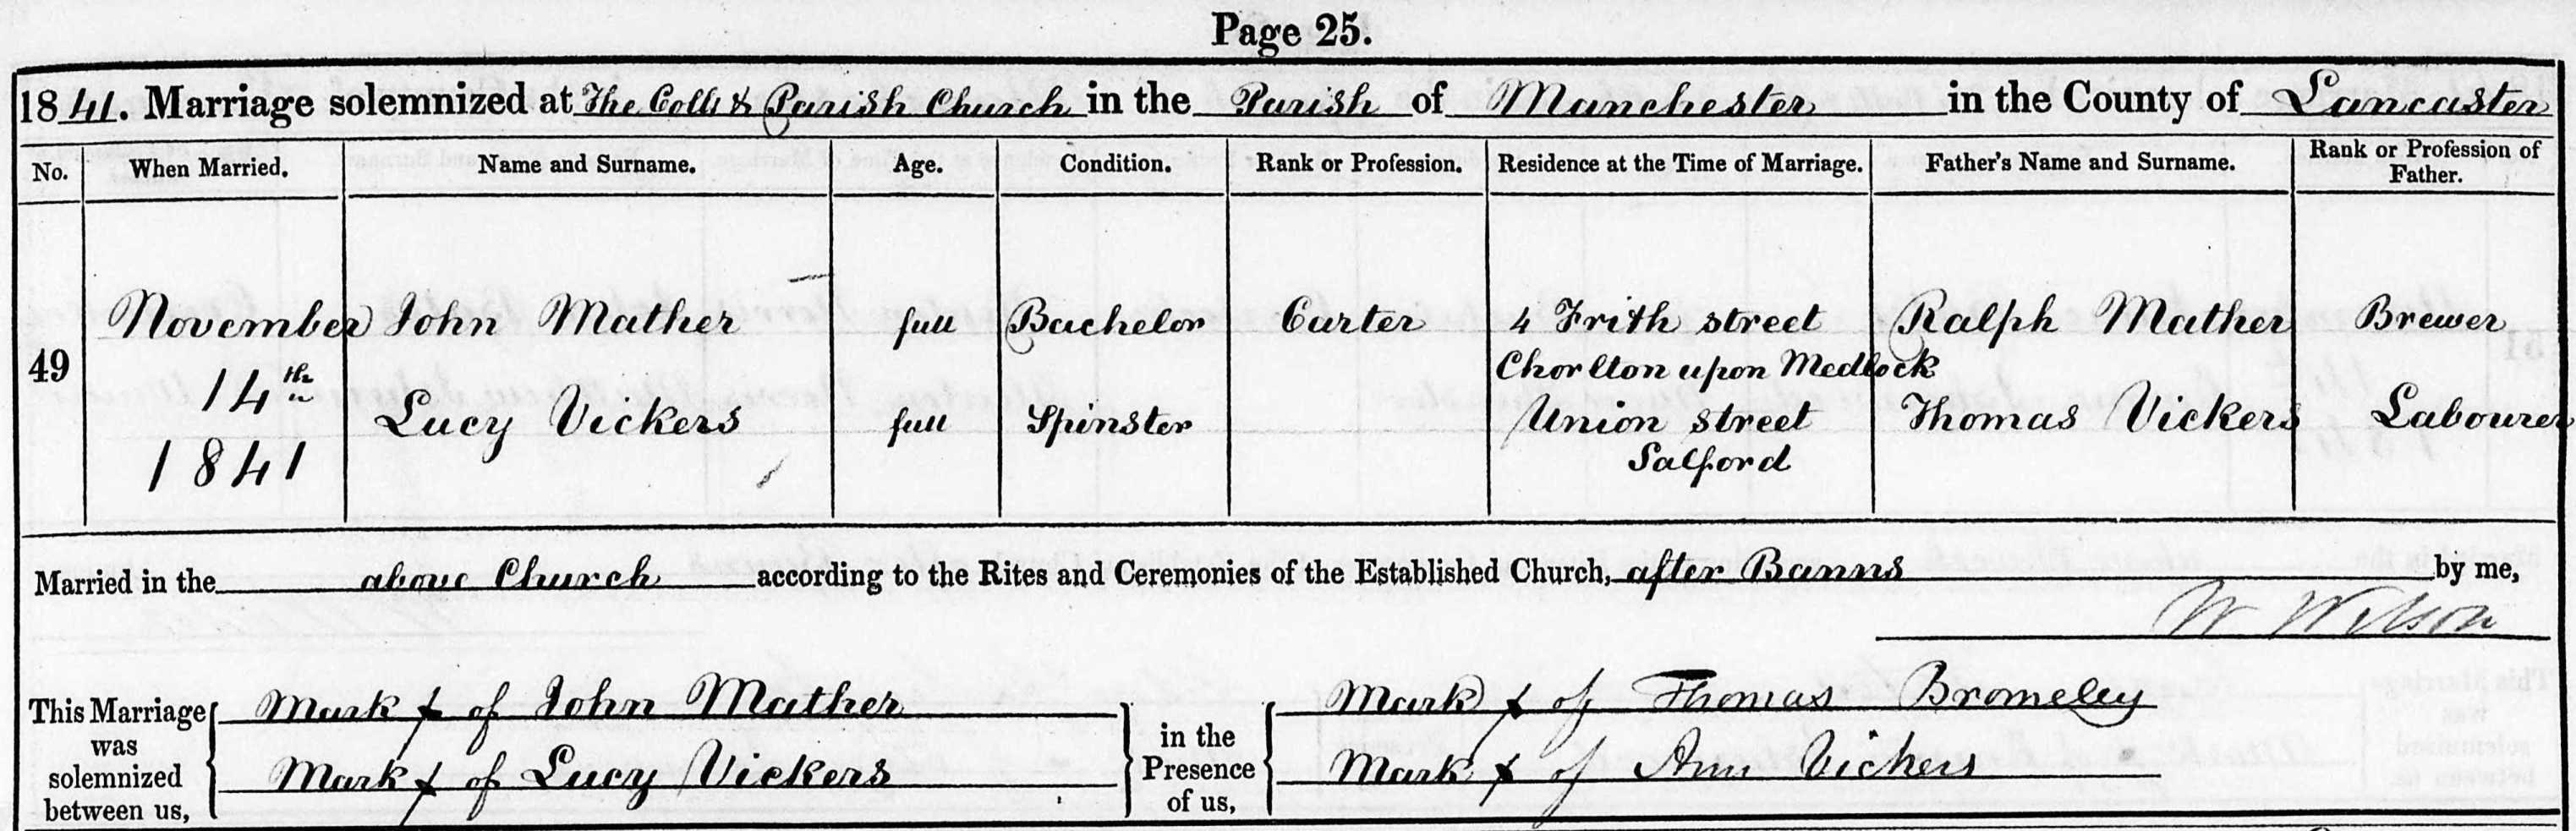 Page 25.
1841. Marriage solemnized at The Coll & Parish Church in the Parish of Manchester in the County of Lancaster
No. When Married. Name and Surname. Age. Condition. Rank or Profession. Residence at the Time of Marriage. Father's Name and Surname. Rank or Profession of Father.
49 November 14th 1841
John Mather full Bachelor Carter 4 Frith street Chorlton upon Medlock Ralph Mather Brewer
Lucy Vickers full Spinster Union street Salford Thomas Vickers Labourer
Married in the above Church according to the Rites and Ceremonies of the Established Church, after Banns by me,
W Wilson
This Marriage was solemnized between us,
Mark x of John Mather
Mark x of Lucy Vickers
in the Presence of us,
Mark x of Thomas Bromeley
Mark x of Ann Vickers